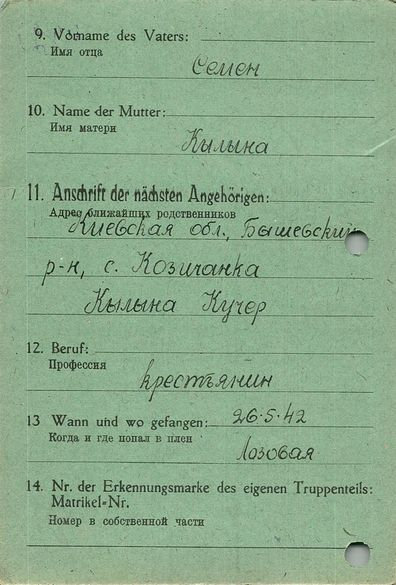 9. Vorname des Vaters:
Имя отца
Семен
10. Name der Mutter:
Имя матери
Кылына
11. Anschrift der nächsten Angehörigen:
Адрес ближайших родственников
Киевская обл., Бышевский
р-н, с. Козичанка
Кылына Кучер
12. Beruf:
Профессия
крестьянин
13 Wann und wo gefangen: 26.5.42
Когда и где попал в плен
Лозовая
14. Nr. der Erkennungsmarke des eigenen Truppenteils:
Matrikel-Nr.
Номер в собственной части